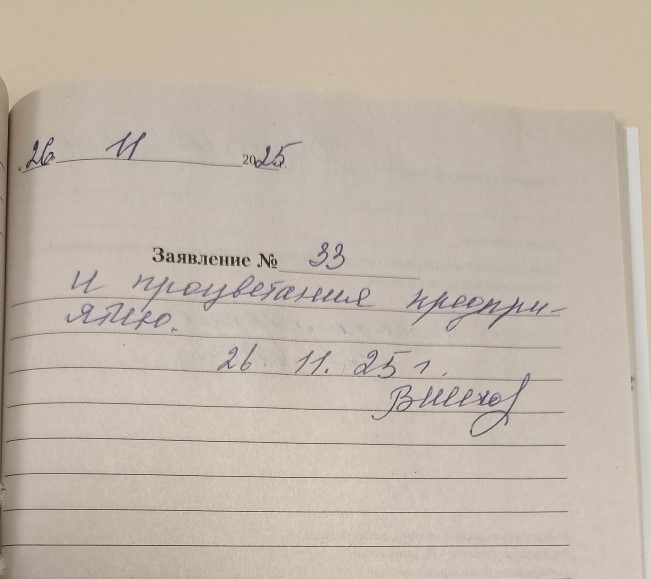 26 11 2025
Заявление № 33
и процветания предпри-
ятию.
26. 11. 25 г.